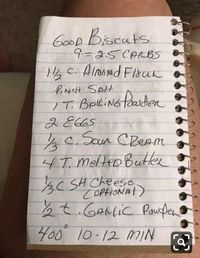 Good Biscuits
9 = 2.5 CARBS
1 1/2 C. Almond Flour
Pinch Salt
1 T. Baking Powder
2 Eggs
1/3 C. Sour Cream
4 T. melted Butter
1/3 C SH Cheese
(OPTIONAL)
1/2 t. Garlic Powder
400° 10-12 MIN